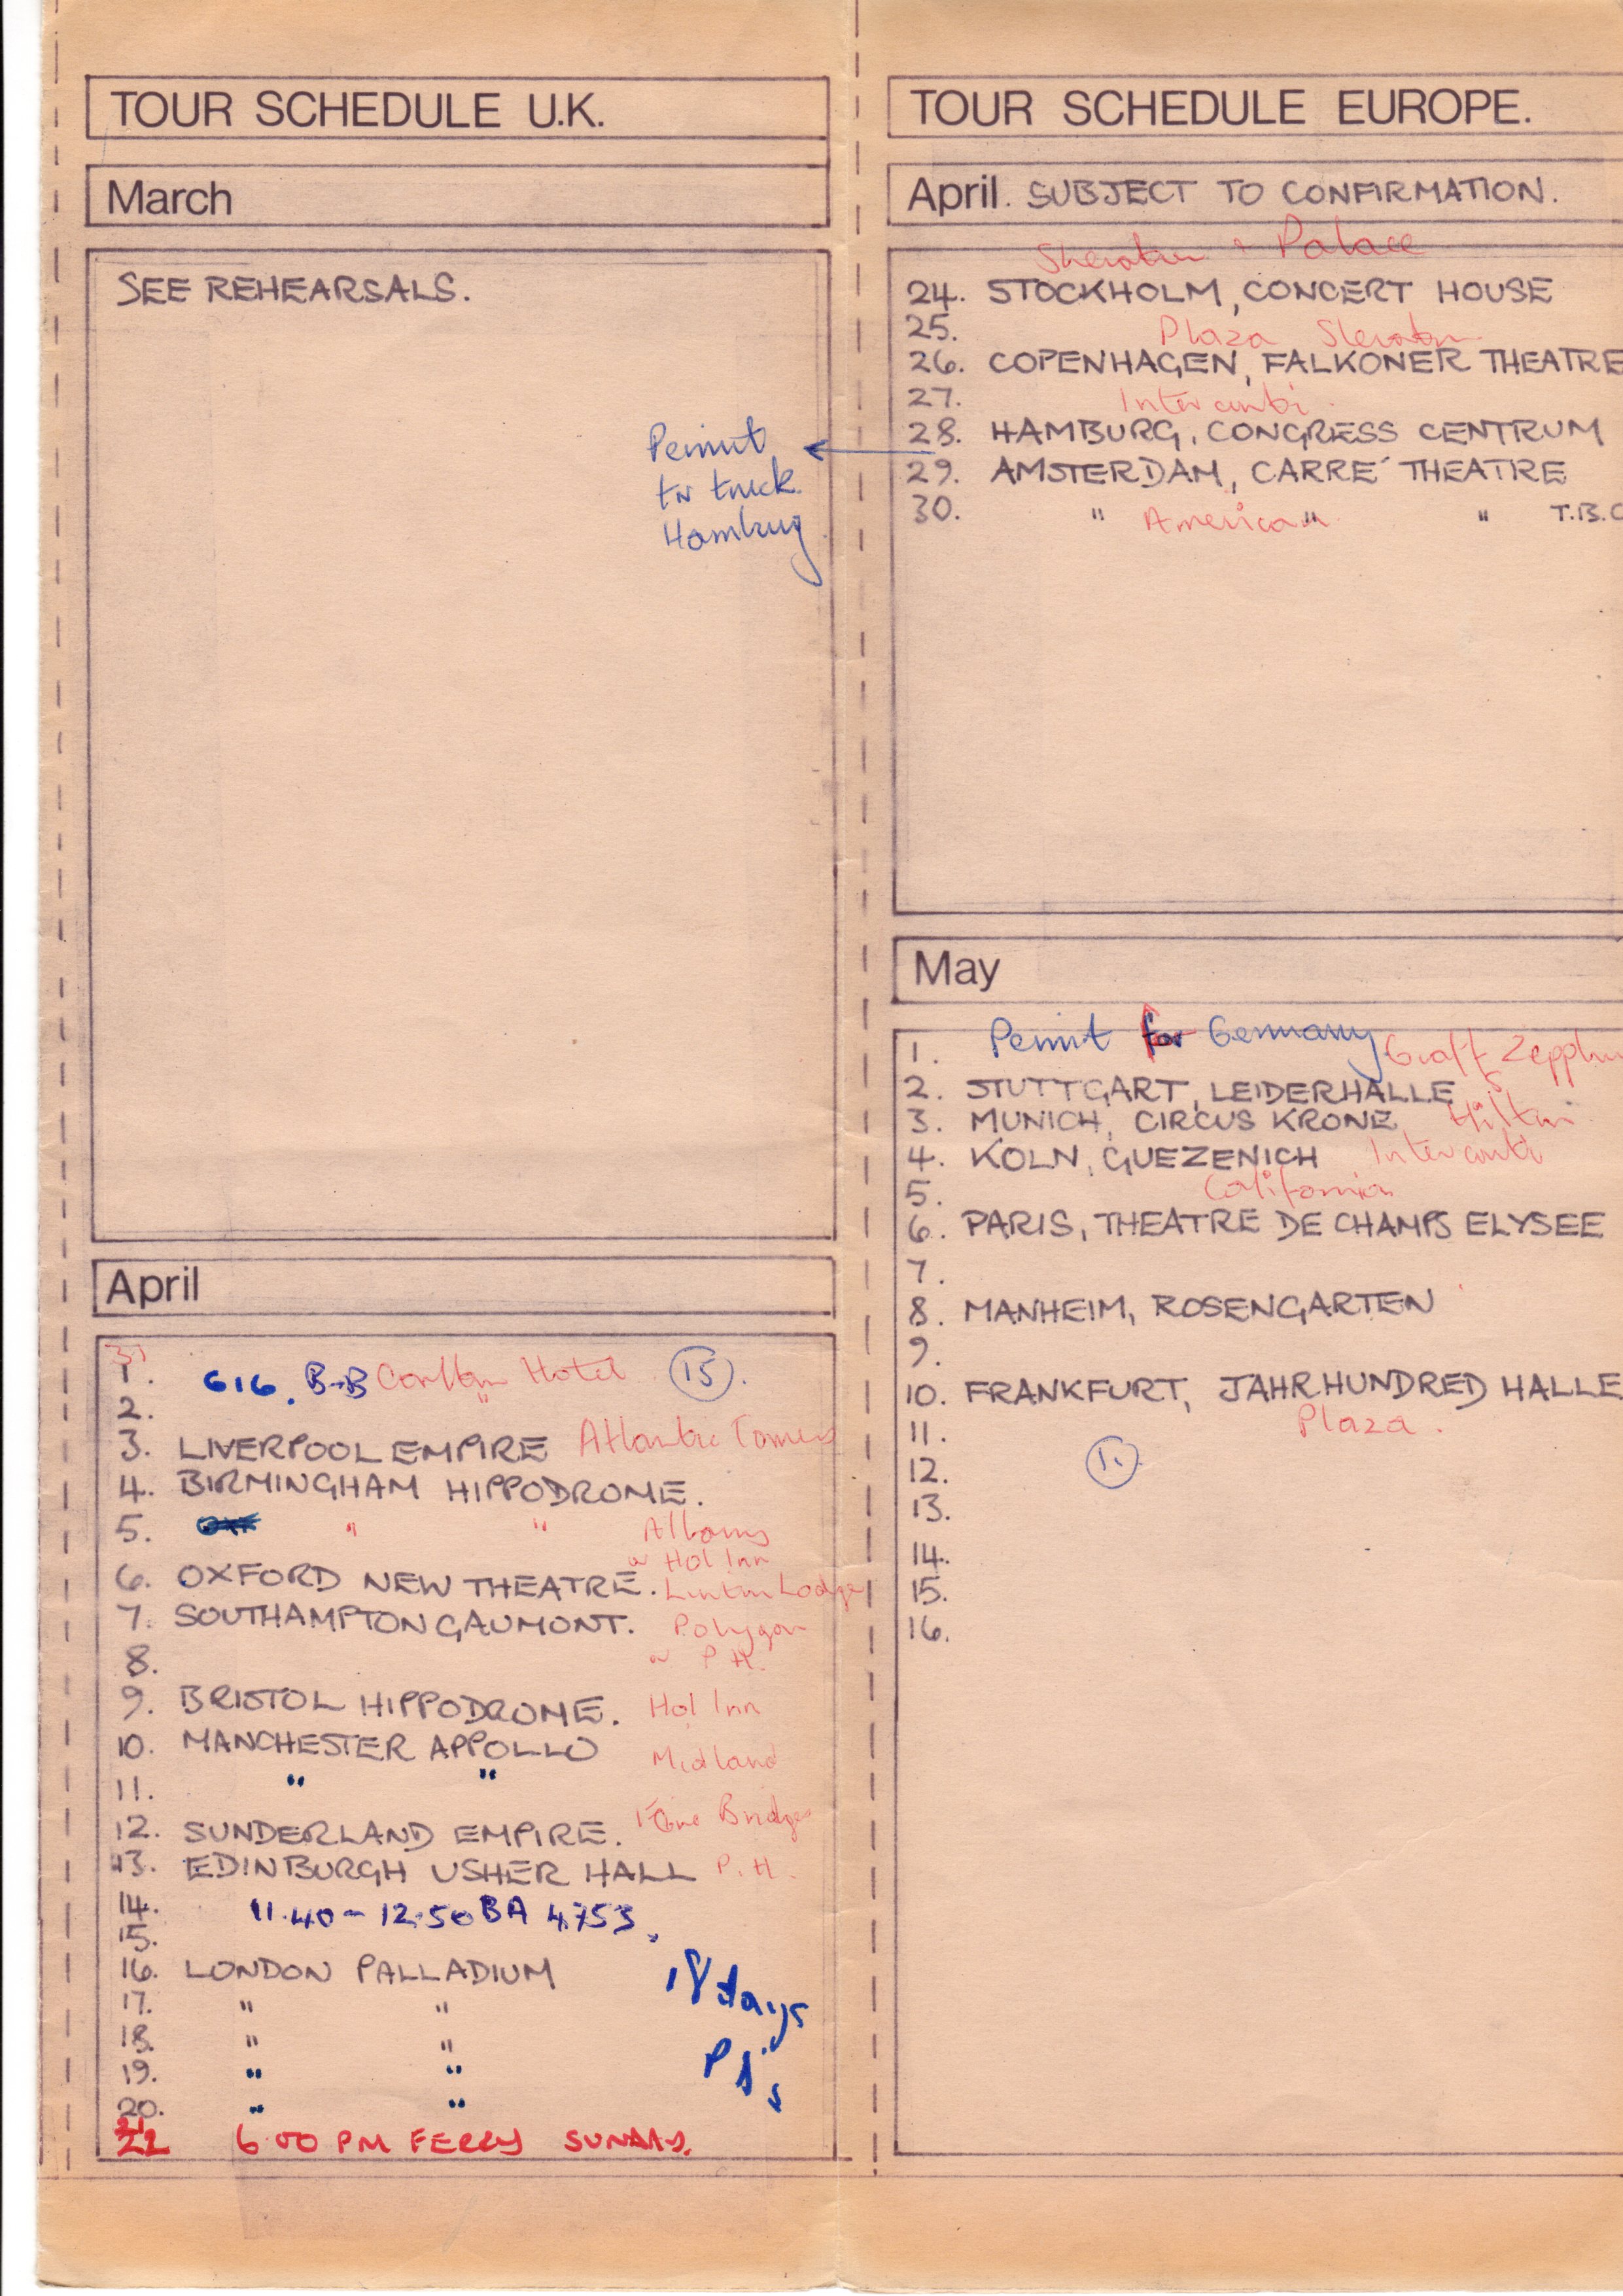 TOUR SCHEDULE U.K.
March
SEE REHEARSALS.
Permit
for truck
Hamburg
April
31
1.
616. B-B Carlton Hotel 15.
2. "
3. LIVERPOOL EMPIRE Atlantic Towers
4. BIRMINGHAM HIPPODROME.
5. " " Albany
or Hol Inn
6. OXFORD NEW THEATRE. Linton Lodge
7. SOUTHAMPTON GAUMONT. Polygon
8. or P.H.
9. BRISTOL HIPPODROME. Hol Inn
10. MANCHESTER APPOLLO
Midland
11. " "
12. SUNDERLAND EMPIRE. Five Bridges
13. EDINBURGH USHER HALL P.H.
14. 11.40 - 12.50 BA 4753.
15.
16. LONDON PALLADIUM
17. " "
18. " "
19. " "
20. " "
18 days
P D's
21
22 6.00 PM FERRY SUNDAY.
TOUR SCHEDULE EUROPE.
April. SUBJECT TO CONFIRMATION.
Sheraton Palace
24. STOCKHOLM, CONCERT HOUSE
25. Plaza Sheraton
26. COPENHAGEN, FALKONER THEATRE
27. Inter conti.
28. HAMBURG, CONGRESS CENTRUM
29. AMSTERDAM, CARRE´ THEATRE
30. " American " " T.B.C
May
1. Permit for Germany Graff Zepplin
2. STUTTGART, LEIDERHALLE
3. MUNICH, CIRCUS KRONE Hilton
4. KOLN, GUEZENICH Inter conti
5. California
6. PARIS, THEATRE DE CHAMPS ELYSEE
7.
8. MANHEIM, ROSENGARTEN
9.
10. FRANKFURT, JAHRHUNDRED HALLE
11. Plaza.
12. 11.
13.
14.
15.
16.